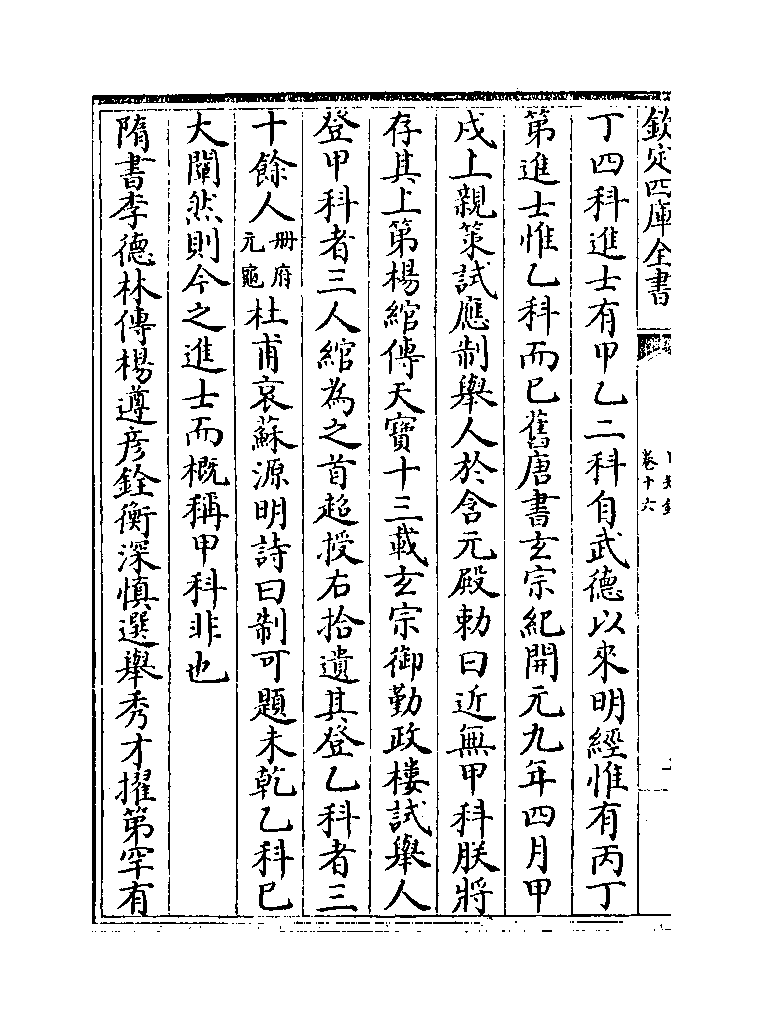 欽定四庫全書
卷十六
丁四科進士有甲乙二科自武德以來明經惟有丙丁
第進士惟乙科而已舊唐書玄宗紀開元九年四月甲
戌上親策試應制舉人於含元殿勅曰近無甲科朕將
存其上第楊綰傳天寶十三載玄宗御勤政樓試舉人
登甲科者三人綰為之首超授右拾遺其登乙科者三
十餘人冊府元龜杜甫哀蘇源明詩曰制可題未乾乙科已
大闡然則今之進士而概稱甲科非也
隋書李德林傳楊遵彦銓衡深慎選舉秀才擢第罕有